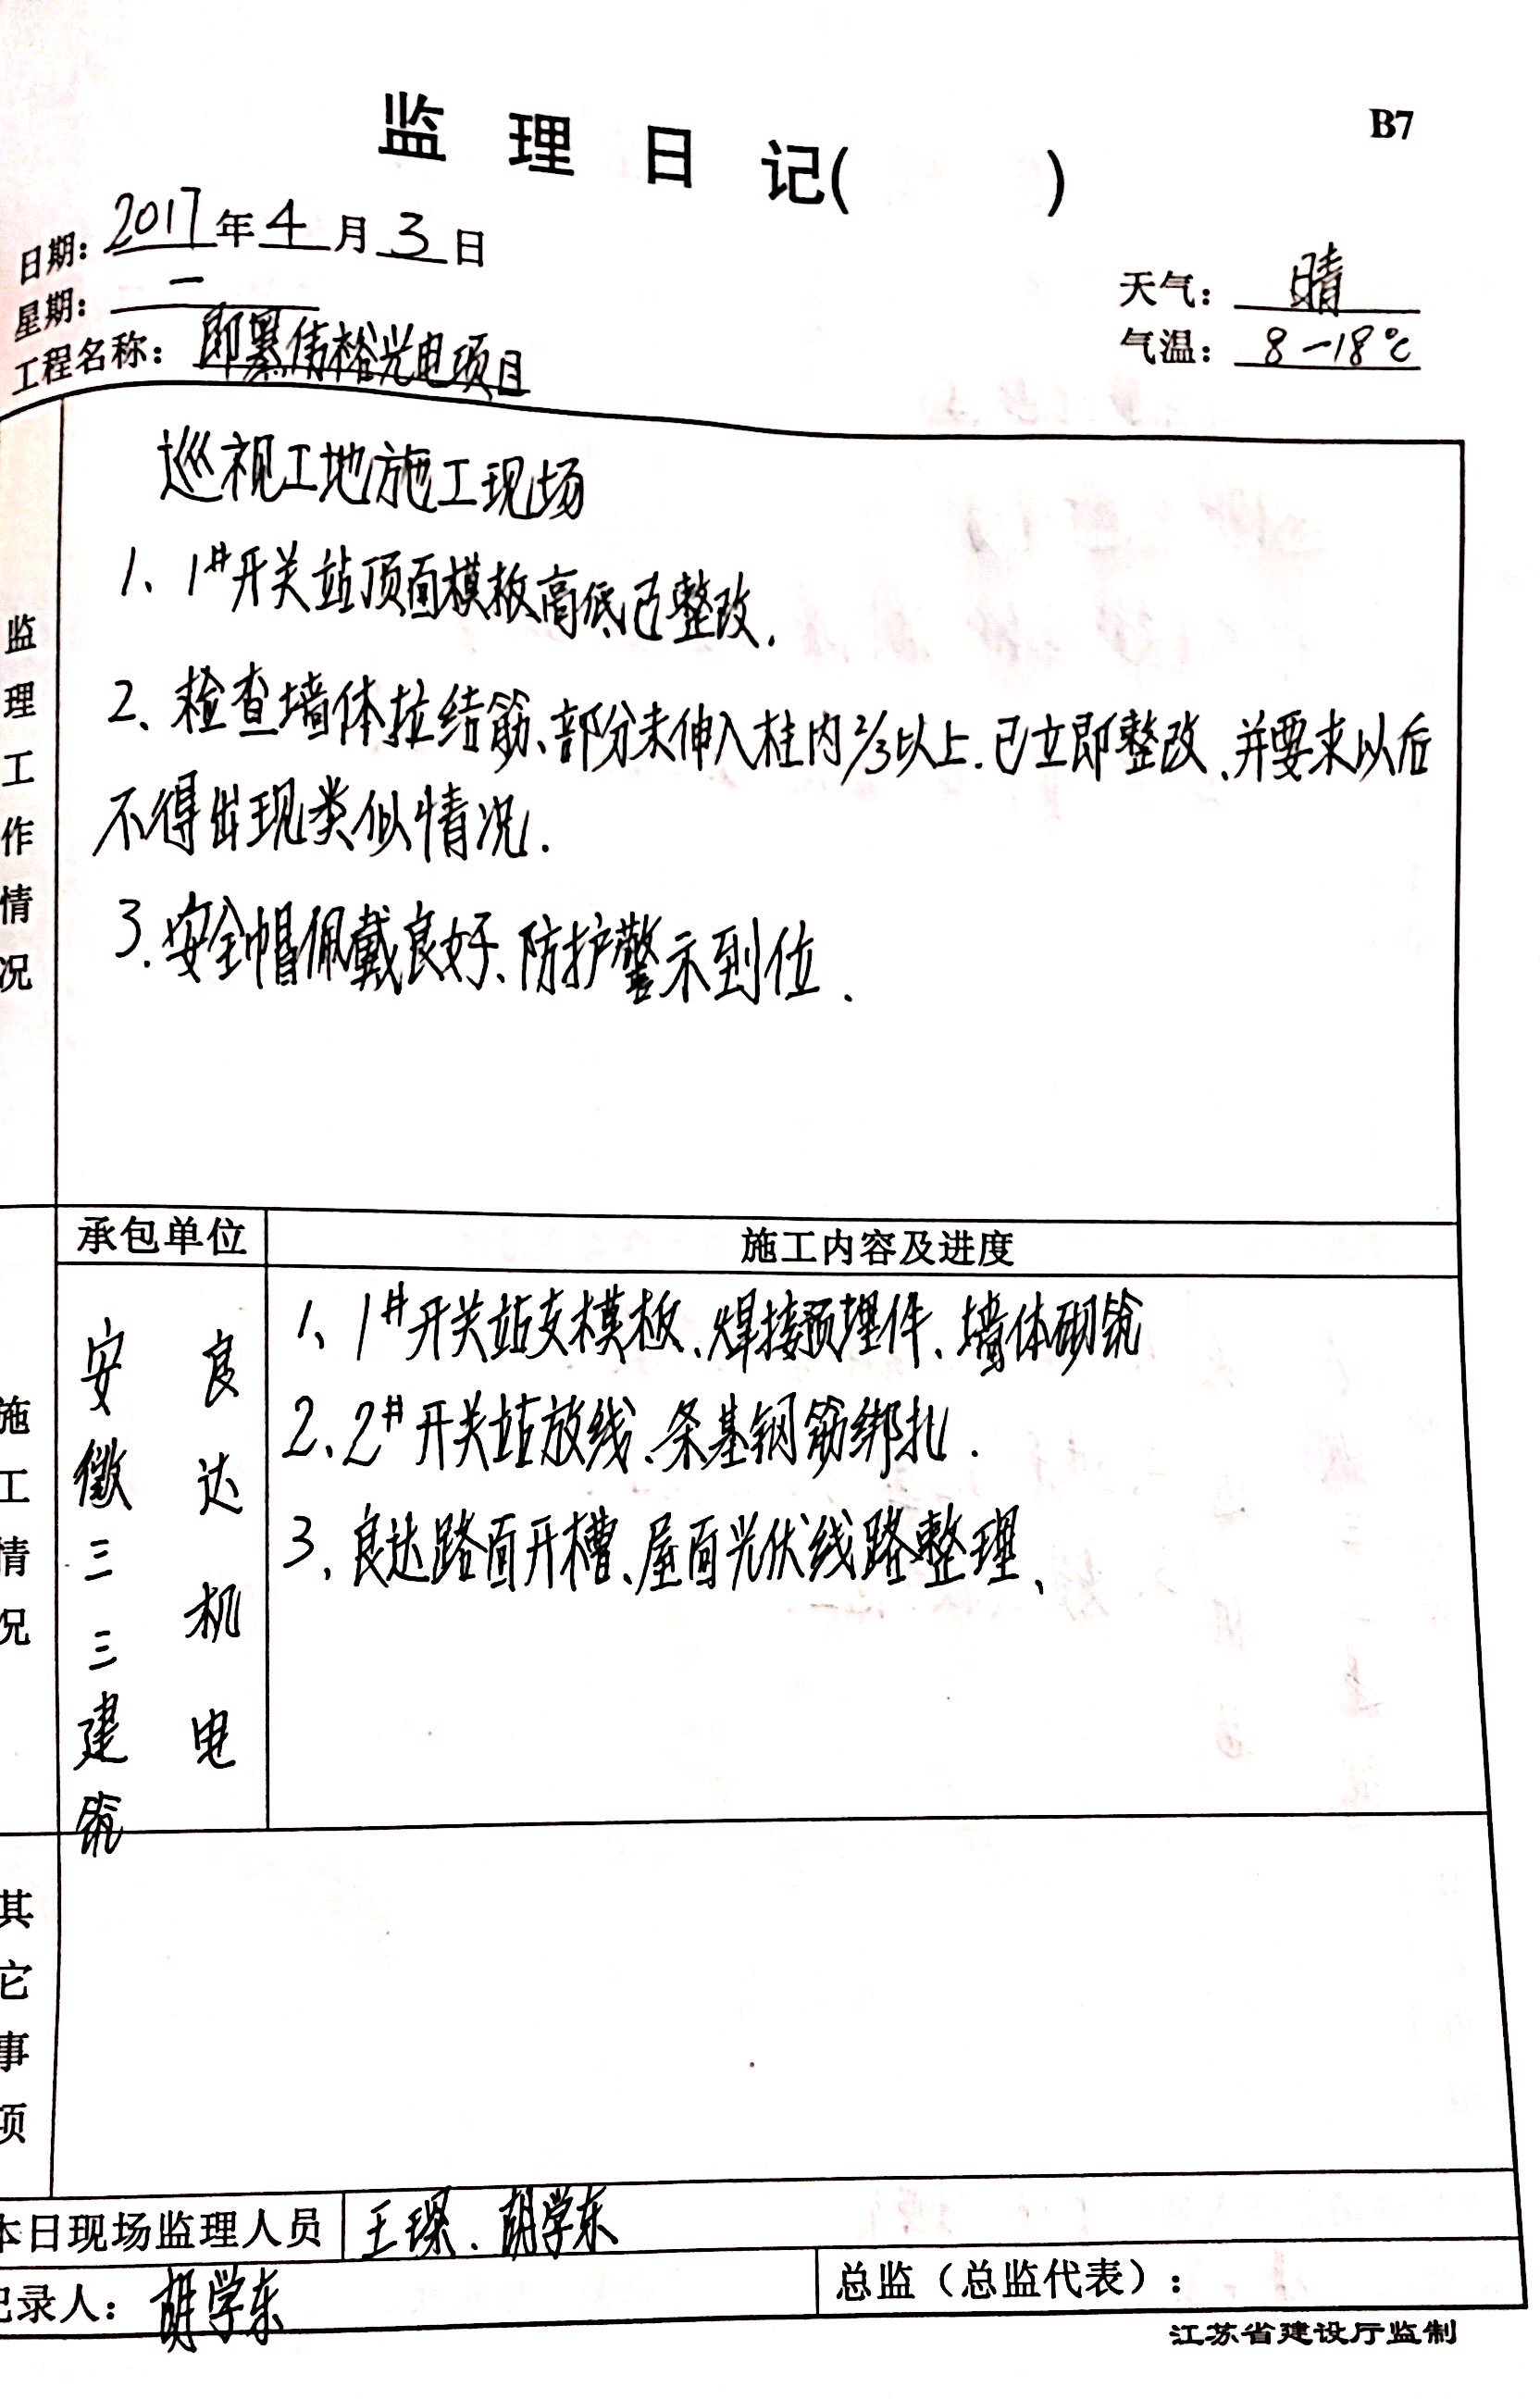 B7
监理日记(　　)
日期：2017年4月3日
星期：一
天气：晴
工程名称：即墨伟裕光电项目
气温：8－18℃
监理工作情况
巡视工地施工现场
1、1#开关站顶面模板高低已整改.
2、检查墙体拉结筋、部分未伸入柱内2/3以上.已立即整改、并要求以后
不得出现类似情况.
3.安全帽佩戴良好、防护警示到位.
承包单位
施工内容及进度
施工情况
安徽三三建筑
良达机电
1、1#开关站支模板、焊接预埋件、墙体砌筑
2、2#开关站放线、条基钢筋绑扎.
3、良达路面开槽、屋面光伏线路整理、
其它事项
本日现场监理人员
王琛、胡学东
记录人：胡学东
总监（总监代表）：
江苏省建设厅监制